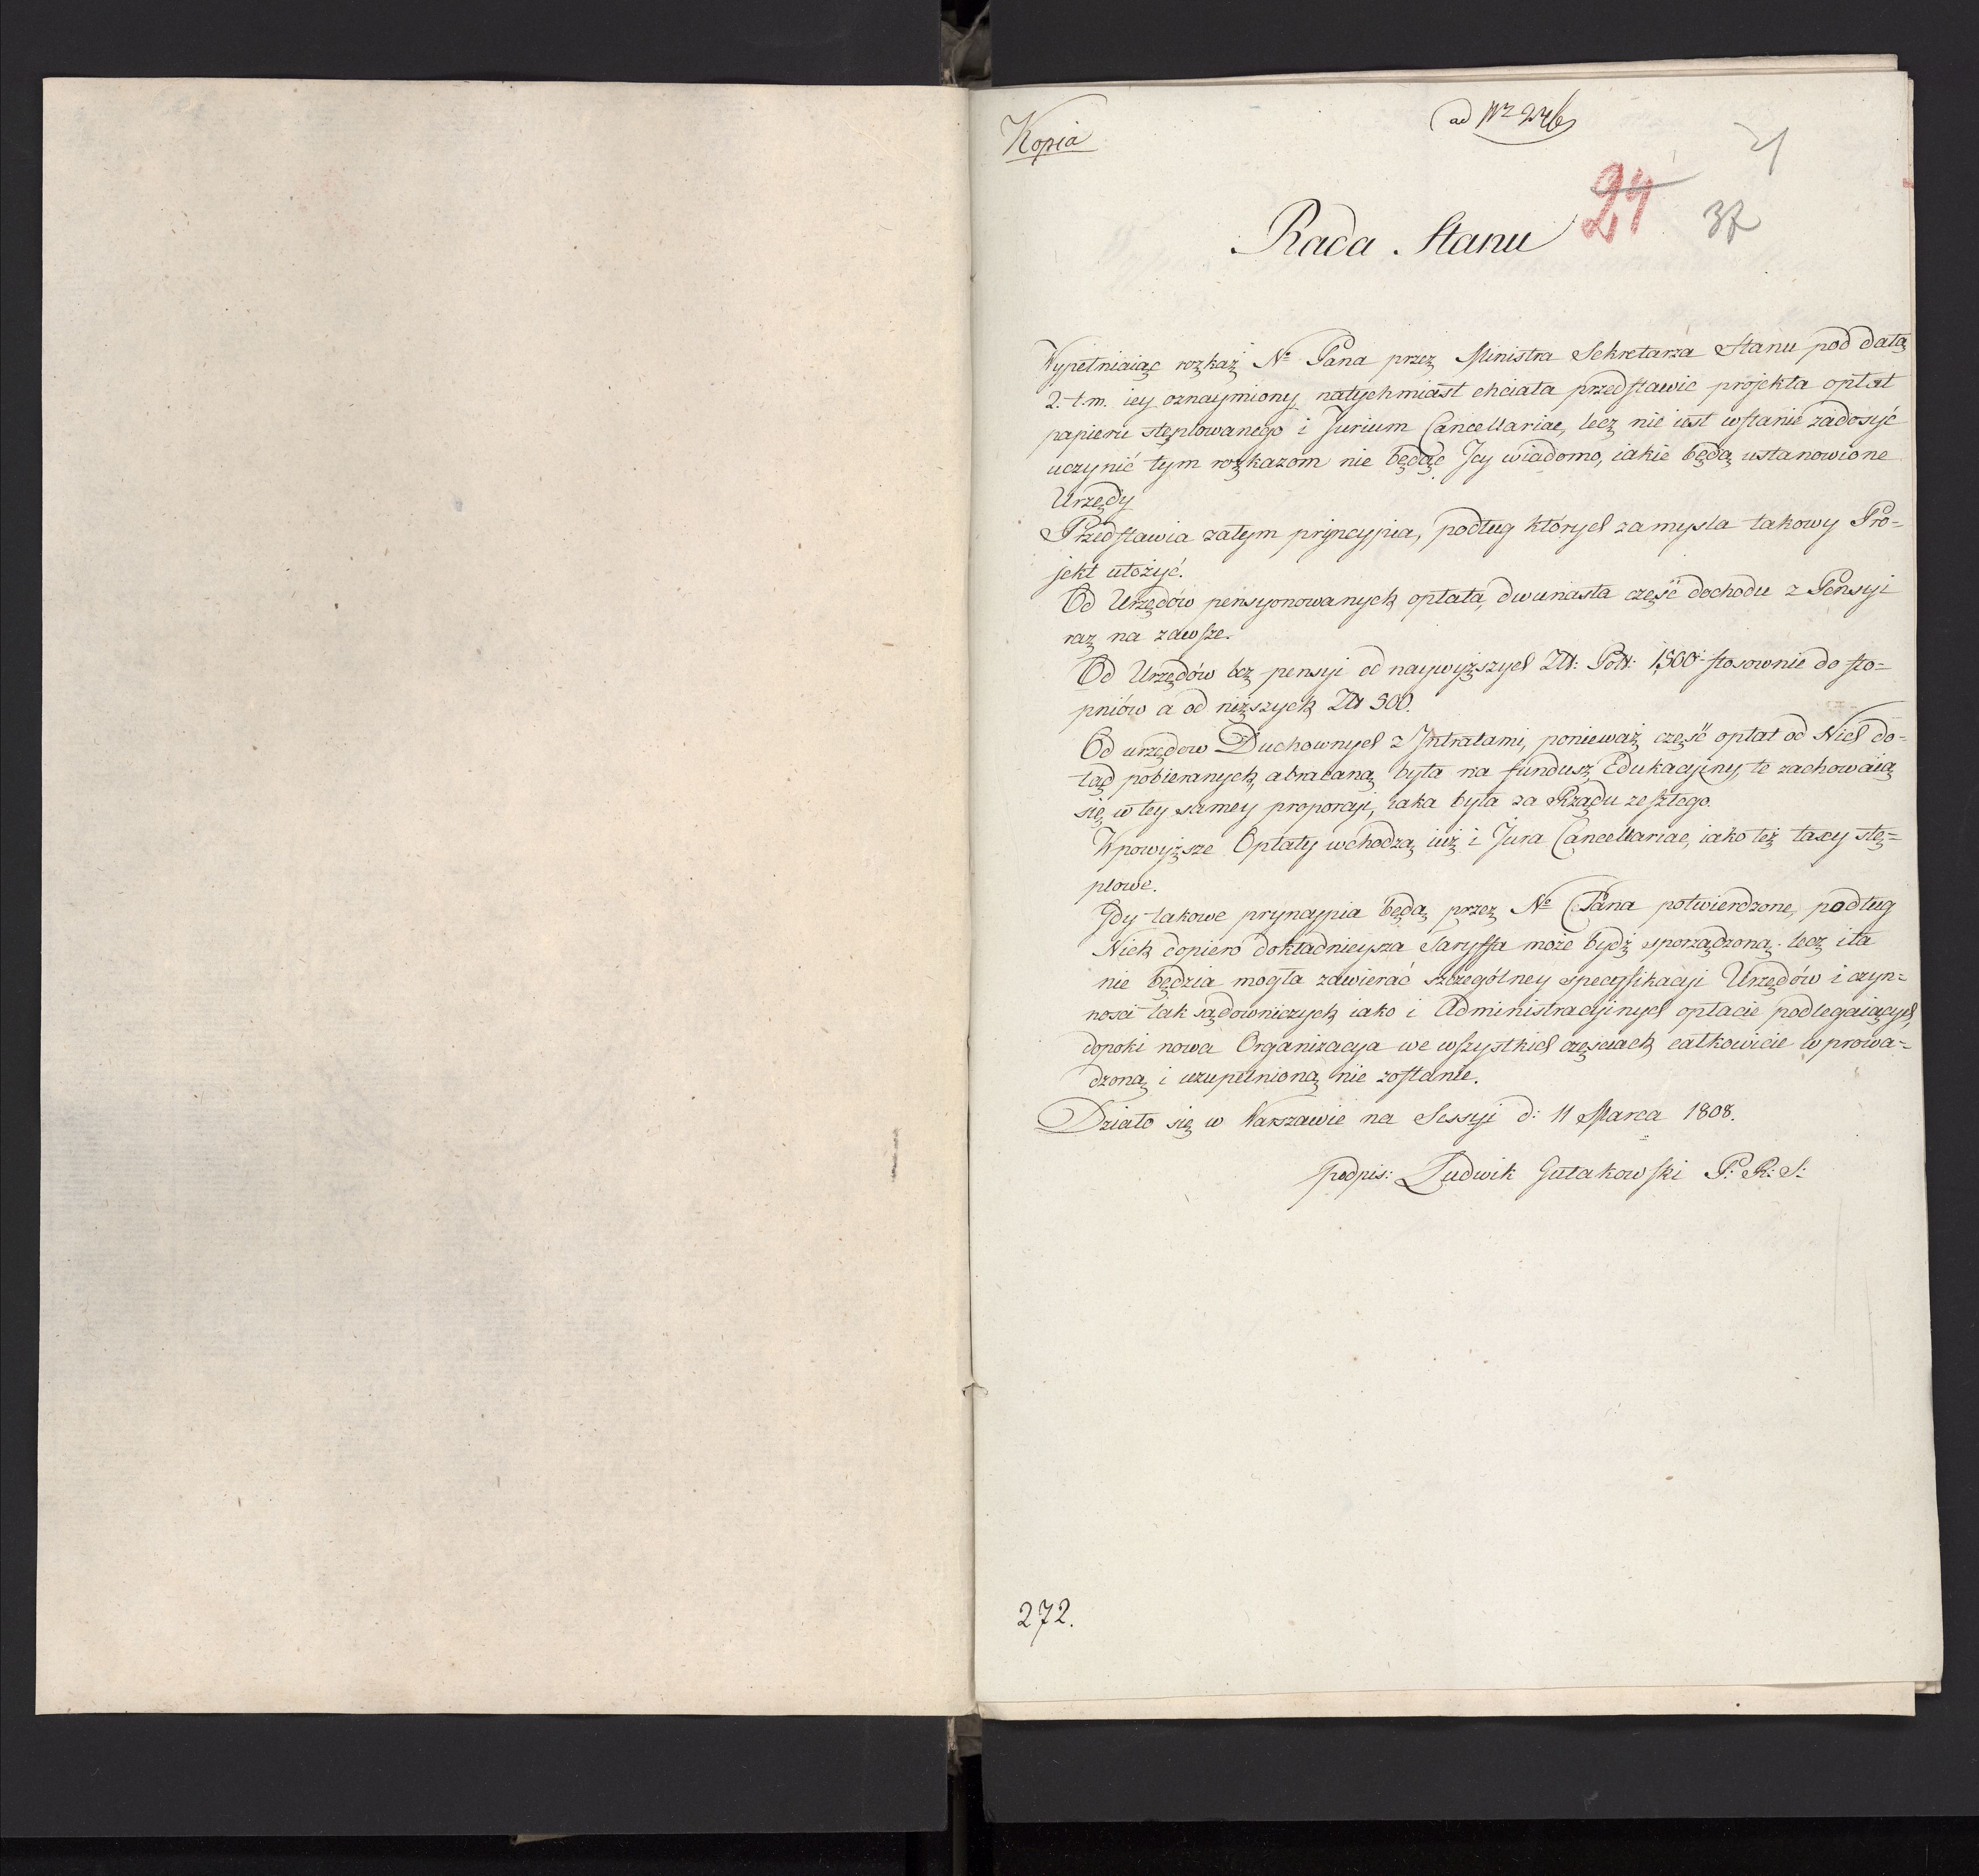 Kopia
ad Nr 246
21
24
37
Rada Stanu
Wypełniaiąc rozkaz No Pana przez Ministra Sekretarza Stanu pod datą
2. t. m. iey oznaymiony, natychmiast chciała przedstawić projekta opłat
papieru stęplowanego i Jurium Cancellariae, lecz nie iest wstanie zadosyć
uczynić tym rozkazom nie będąc Jey wiadomo, iakie będą ustanowione
Urzędy
Przedstawia zatym pryncypia, podług których zamyśla takowy Pro=
jekt ułożyć.
Od Urzędów pensyonowanych opłata, dwunasta część dochodu z Pensyi
raz na zawsze.
Od Urzędów bez pensyi od naywyższych Złł: Poll: 1500 stosownie do sto=
pniów a od niższych Złł 500.
Od urzędow Duchownych z Intratami, ponieważ część opłat od Nich do=
tąd pobieranych, abracaną była na fundusz Edukacyiny, te zachowaią
się w tey samey proporcyi, iaka była za Rządu zeszłego.
W powyższe Opłaty wchodzą iuż i Jura Cancellariae, iako też taxy stę=
plowe.
Gdy takowe pryncypia będą przez No Pana potwierdzone, podług
Nich dopiero dokładnieysza Taryffa może bydź sporządzoną. lecz i ta
nie będzia mogła zawierać szczególney specyfikacyi Urzędów i czyn=
ności tak sądowniczych iako i Administracyinych opłacie podlegaiących,
dopoki nowa Organizacya we wszystkich częściach całkowicie wprowa=
dzoną i uzupełnioną nie zostanie.
Działo się w Warszawie na Sessyi d: 11 Marca 1808.
podpis: Ludwik Gutakowski P: R: S:
272.